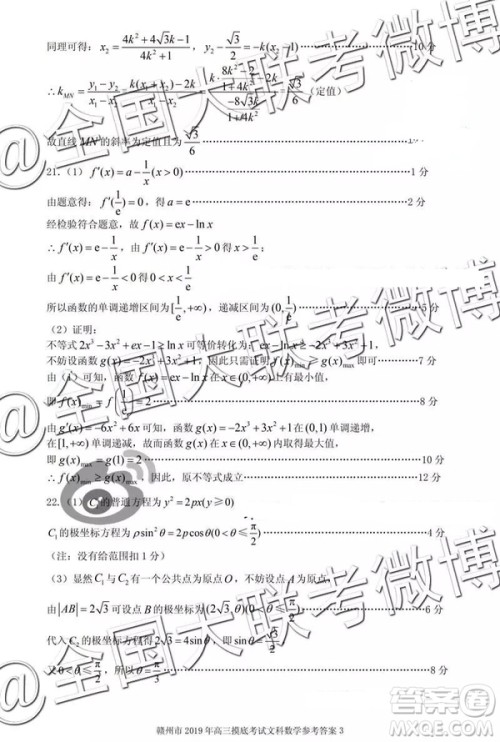 同理可得：x₂=(4k²+4√3k-1)/(4k²+1)，y₂-√3/2=-k(x₂-1)……10分
∴k_MN=(y₁-y₂)/(x₁-x₂)=(k(x₁+x₂)-2k)/(x₁-x₂)=(k·(8k²-2)/(1+4k²)-2k)/(-8√3k/(1+4k²))=√3/6（定值）
故直线MN的斜率为定值且为√3/6
21.（1）f′(x)=a-1/x(x>0)……1分
由题意得：f′(1/e)=0，得a=e……2分
经检验符合题意，故f(x)=ex-lnx
∴f′(x)=e-1/x，由f′(x)=e-1/x>0得x>1/e；
由f′(x)=e-1/x<0得0<x<1/e
所以函数的单调递增区间为[1/e,+∞)，递减区间为(0,1/e)……5分
（2）证明：
不等式2x³-3x²+ex-1≥lnx可等价转化为：ex-lnx≥-2x³+3x²+1.
不妨设函数g(x)=-2x³+3x²+1. 因此只需证明f(x)min≥g(x)max即可……7分
由（1）可知，函数f(x)=ex-lnx在x∈(0,+∞)上有最小值，
即f(x)min=f(1/e)=2……8分
由g′(x)=-6x²+6x可知，函数g(x)=-2x³+3x²+1在(0,1)单调递增，
在[1,+∞)单调递减，故而函数g(x)在x∈(0,+∞)内取得最大值，
即g(x)max=g(1)=2……10分
∴f(x)min≥g(x)max，因此，原不等式成立……12分
22.（1）C₁的普通方程为y²=2px(y≥0)
C₁的极坐标方程为ρsin²θ=2pcosθ(0<θ≤π/2)……4分
（注：没有给范围扣1分）
（3）显然C₁与C₂有一个公共点为原点O，不妨设点A为原点，
由|AB|=2√3可设点B的极坐标为(2√3,θ)……6分
代入C₂的极坐标方程得2√3=4sinθ，即sinθ=√3/2
又0<θ≤π/2，所以θ=π/3……8分
赣州市2019年高三摸底考试文科数学参考答案 3
@全国大联考微博
@全国大联考微博
@全国大联考微博